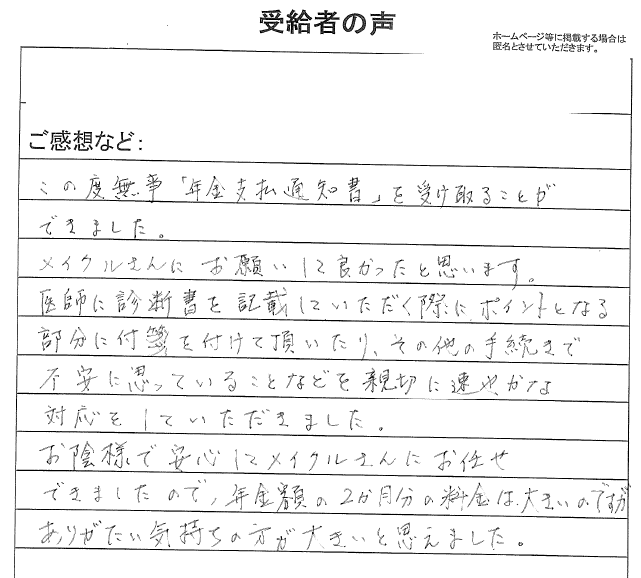 受給者の声
ホームページ等に掲載する場合は
匿名とさせていただきます。
ご感想など：
この度無事「年金支払通知書」を受け取ることが
できました。
メイクルさんにお願いして良かったと思います。
医師に診断書を記載していただく際に、ポイントとなる
部分に付箋を付けて頂いたり、その他の手続きまで
不安に思っていることなどを親切に速やかな
対応をしていただきました。
お陰様で安心してメイクルさんにお任せ
できましたので、年金額の2か月分の料金は大きいのですが
ありがたい気持ちの方が大きいと思えました。